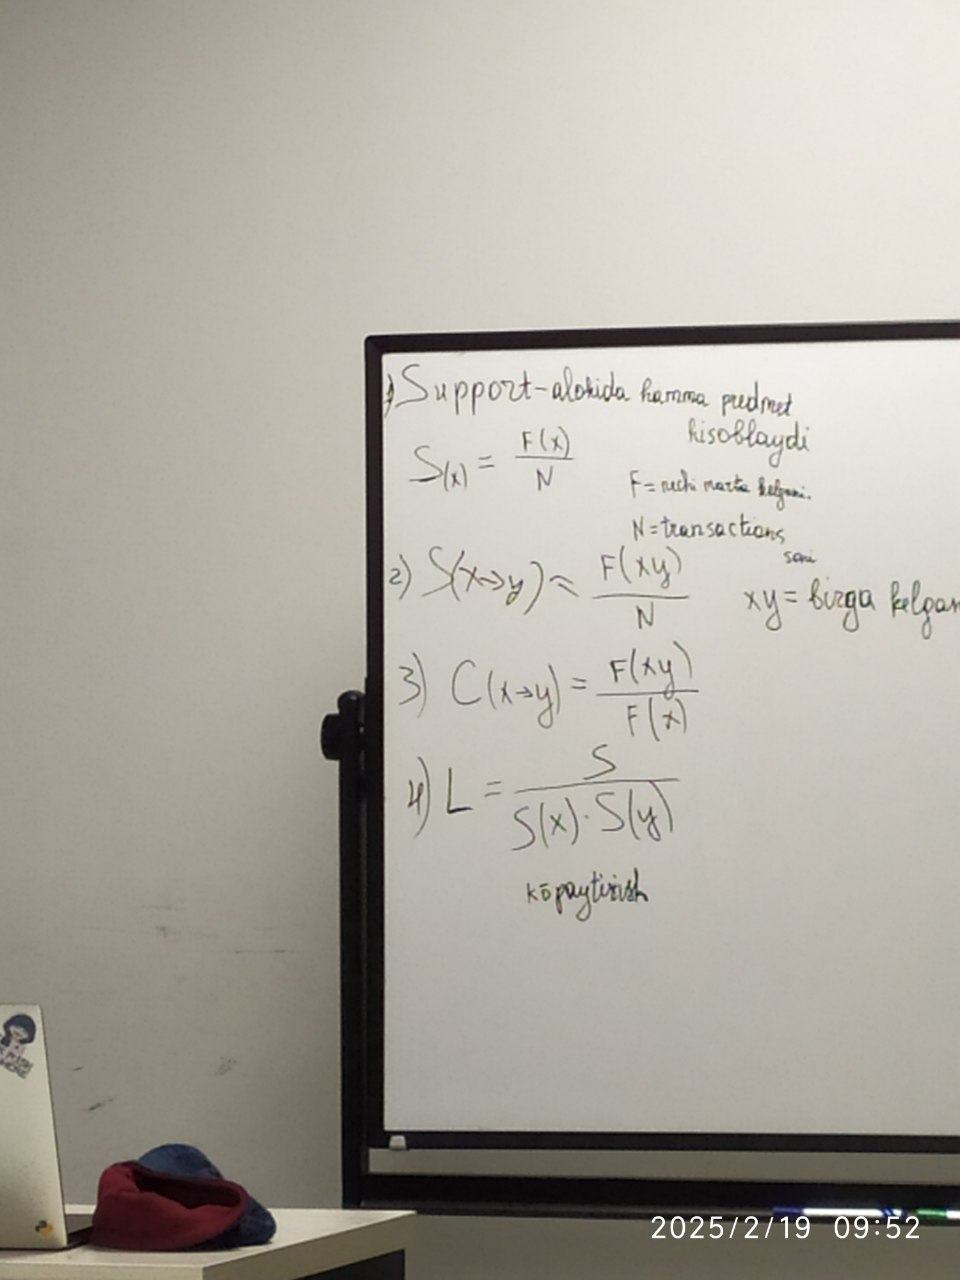 1) Support - alohida hamma predmet
hisoblaydi
S(x) = F(x) / N
F = nechi marta kelgani.
N = transactions
soni
2) S(x→y) = F(xy) / N
xy = birga kelgan
3) C(x→y) = F(xy) / F(x)
4) L = S / S(x) · S(y)
kōpaytirish
2025/2/19 09:52